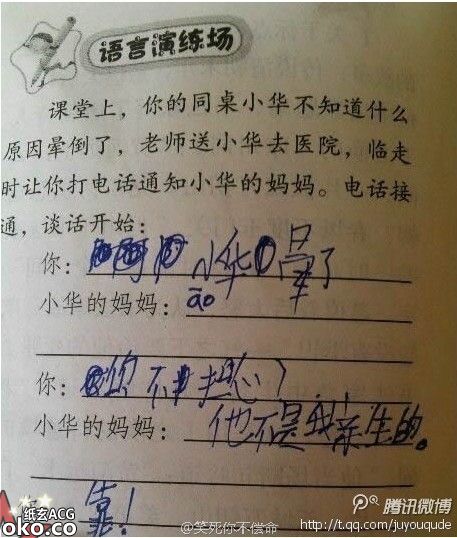 语言演练场
课堂上，你的同桌小华不知道什么
原因晕倒了，老师送小华去医院，临走
时让你打电话通知小华的妈妈。电话接
通，谈话开始：
你：小华晕了
小华的妈妈：āo
你：你不担心？
小华的妈妈：他不是我亲生的。
靠！
纸玄ACG
oko.co
@笑死你不偿命
腾讯微博
http://t.qq.com/juyouqude